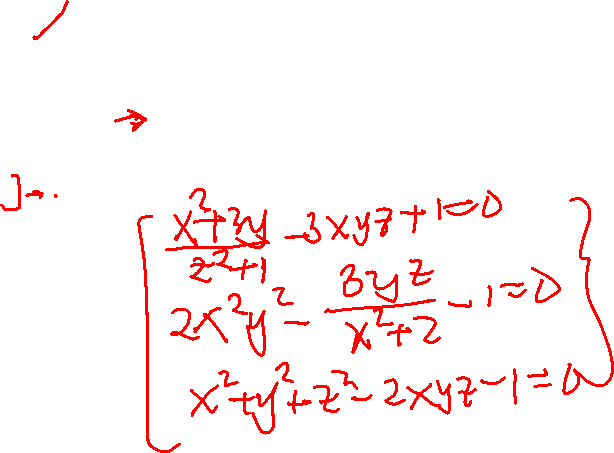 →
J→.
(x²+3y)/(z²+1) - 3xyz + 1 = 0
2x²y² - 3yz/(x²+2) - 1 = 0
x² + y² + z² - 2xyz - 1 = 0